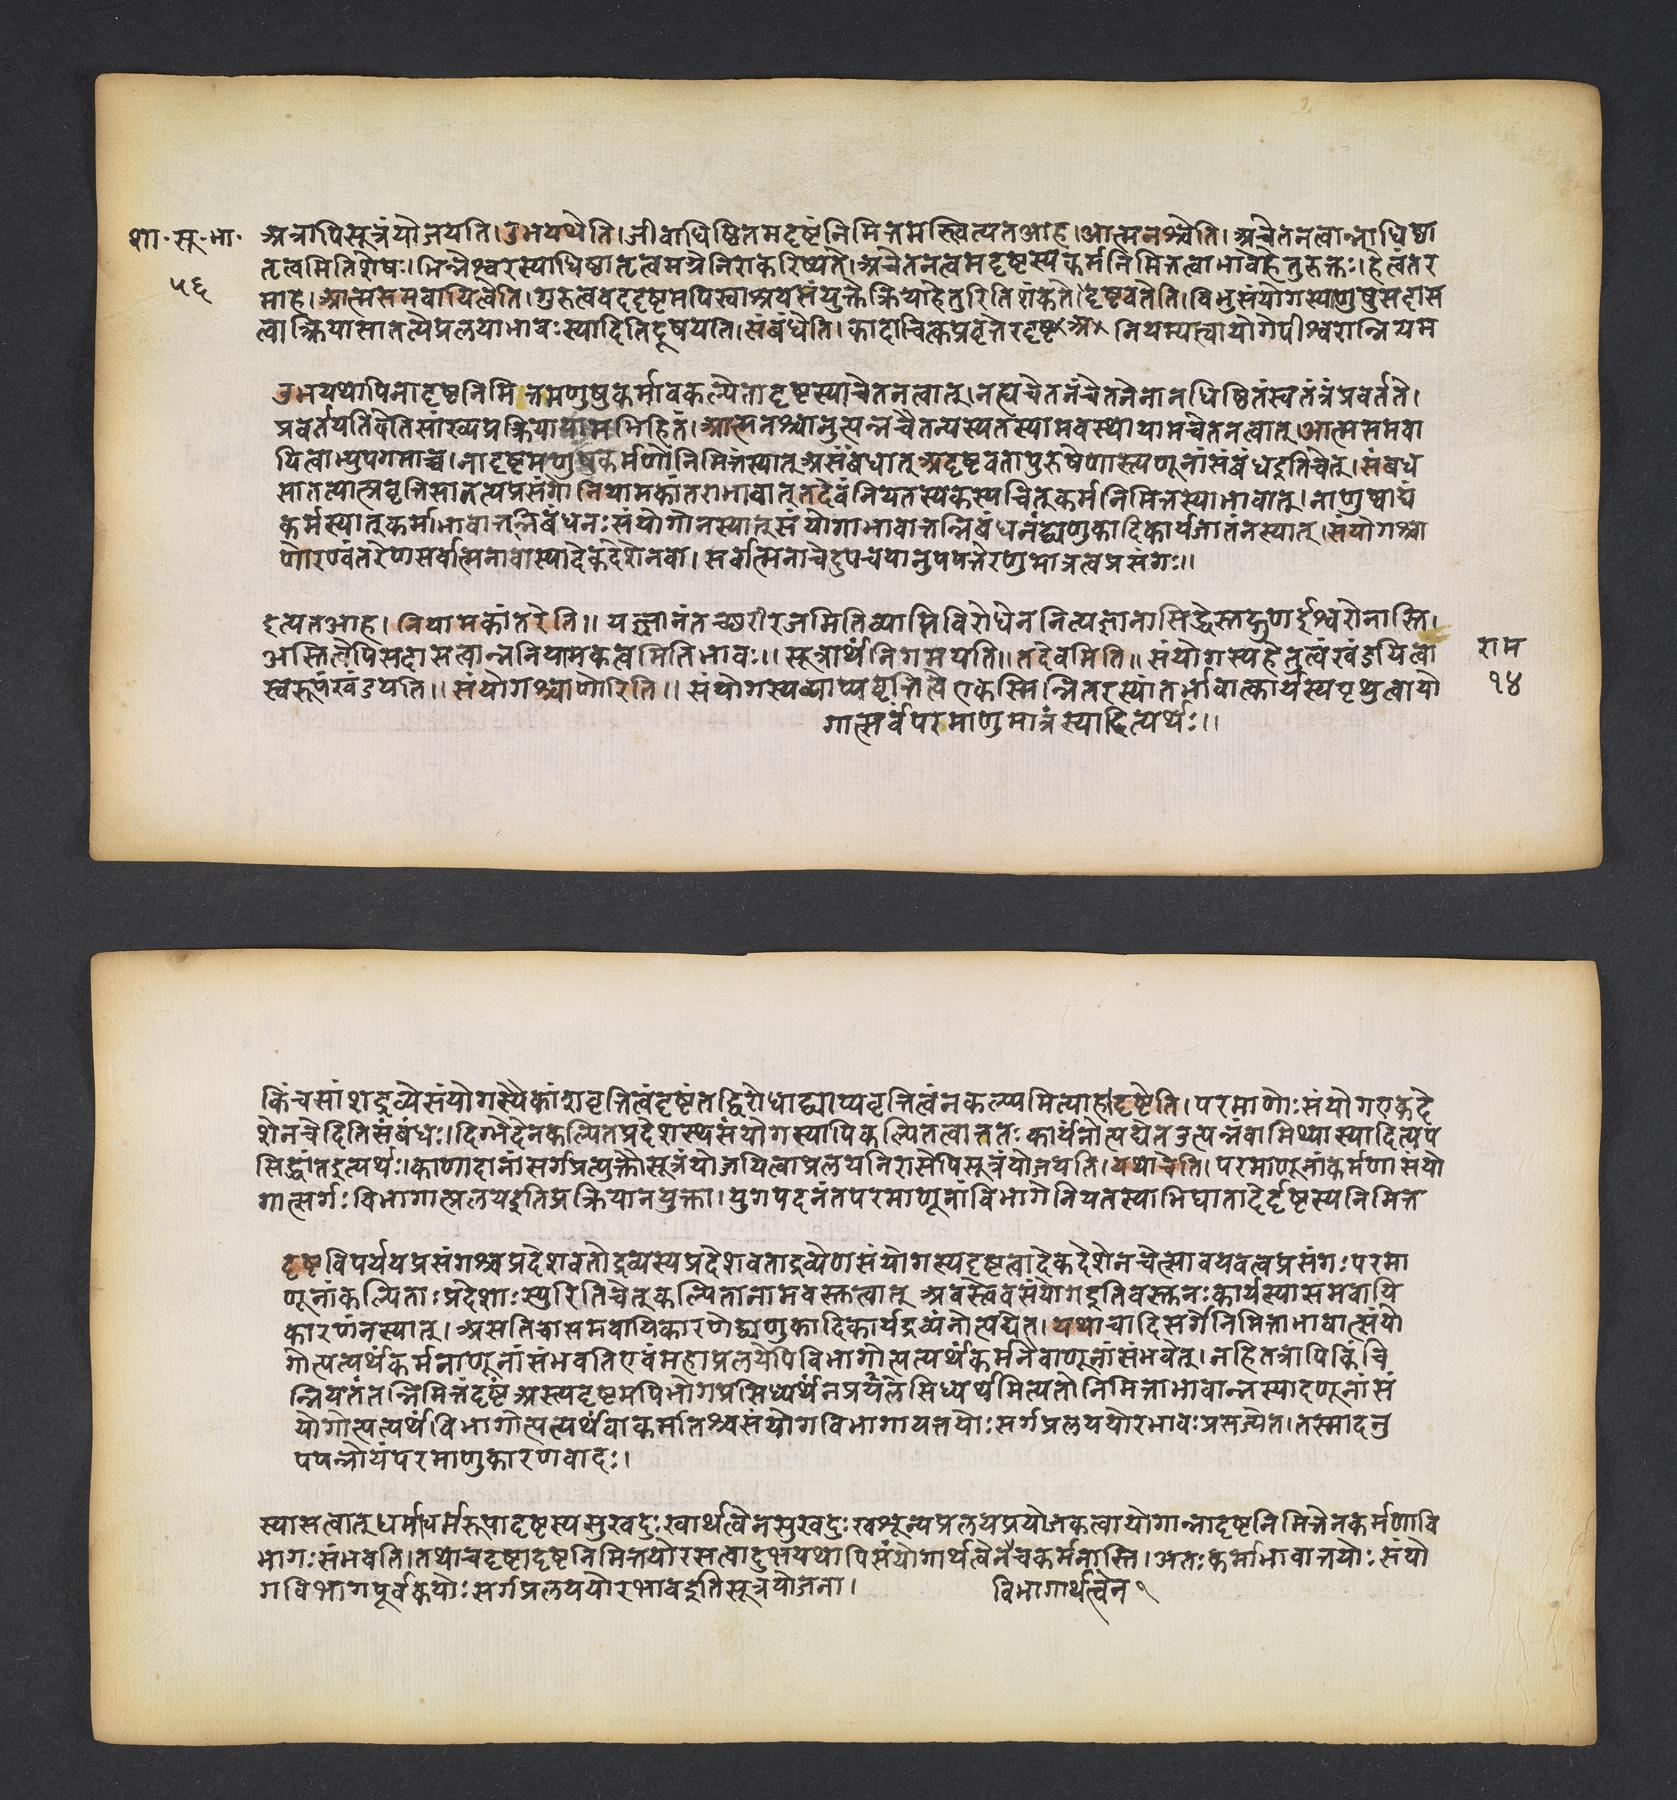 शा॰सू॰भा॰
५६
अत्रापिसूत्रंयोजयति।उभयथेति।जीवाधिष्ठितमदृष्टंनिमित्तमस्त्वित्यतआह।आत्मनश्चेति।अचेतनत्वान्नाधिष्ठा
तृत्वमितिशेषः।भिन्नेश्वरस्याधिष्ठातृत्वमग्रेनिराकरिष्यते।अचेतनत्वमदृष्टस्यकर्मनिमित्तत्वाभावेहेतुरुक्तः।हेत्वंतर
माह।आत्मसमवायित्वेति।गुरुत्ववददृष्टमपिस्वाश्रयसंयुक्तेक्रियाहेतुरितिशंकते।दृष्टवतेति।विभुसंयोगस्याणुषुसदास
त्वाक्रियासातत्येप्रलयाभावःस्यादितिदूषयति।संबंधेति।कादाचित्कप्रवृत्तेरदृष्ट नियम्यत्वायोगेपीश्वरान्नियम
उभयथापिनादृष्टनिमित्तमणुषुकर्मावकल्पेतादृष्टस्याचेतनत्वात्।नह्यचेतनंचेतनेनानधिष्ठितंस्वतंत्रंप्रवर्तते।
प्रवर्तयतिवेतिसांख्यप्रक्रियायामभिहितं।आत्मनश्चानुत्पन्नचैतन्यस्यतस्यामवस्थायामचेतनत्वात्।आत्मसमवा
यित्वाभ्युपगमाच्च।नादृष्टमणुषुकर्मणोनिमित्तंस्यात्असंबंधात्अदृष्टवतापुरुषेणास्त्यणूनांसंबंधइतिचेत्।संबंध
सातत्यात्प्रवृत्तिसातत्यप्रसंगोनियामकांतराभावात्तदेवंनियतस्यकस्यचित्कर्मनिमित्तस्याभावात्।नाणुष्वाद्यं
कर्मस्यात्कर्माभावात्तन्निबंधनःसंयोगोनस्यात्संयोगाभावात्तन्निबंधनंद्व्यणुकादिकार्यजातंनस्यात्।संयोगश्चा
णोरण्वंतरेणसर्वात्मनावास्यादेकदेशेनवा।सर्वात्मनाचेदुपचयानुपपत्तेरणुमात्रत्वप्रसंगः॥
इत्यतआह।नियामकांतरेति॥यज्ज्ञानंतच्छरीरजमितिव्याप्तिविरोधेननित्यज्ञानासिद्धेस्तद्गुणईश्वरोनास्ति।
अस्तित्वेपिसदासत्वान्ननियामकत्वमितिभावः॥सूत्रार्थंनिगमयति॥तदेवमिति॥संयोगस्यहेतुत्वंखंडयित्वा
स्वरूपंखंडयति॥संयोगश्चाणोरिति॥संयोगस्यव्याप्यवृत्तित्वेएकस्मिन्नितरस्यांतर्भावात्कार्यस्यपृथुत्वायो
गात्सर्वंपरमाणुमात्रंस्यादित्यर्थः॥
राम
१४
किंचसांशद्रव्येसंयोगस्यैकांशवृत्तित्वंदृष्टंतद्विरोधाद्व्याप्यवृत्तित्वंनकल्प्यमित्याह।दृष्टेति।परमाणोःसंयोगएकदे
शेनचेदितिसंबंधः।दिग्भेदेनकल्पितप्रदेशस्थसंयोगस्यापिकल्पितत्वात्ततःकार्यंनोत्पद्येतउत्पन्नंवामिथ्यास्यादित्यप
सिद्धांतइत्यर्थः।काणादानांसर्गप्रत्युक्तौसूत्रंयोजयित्वाप्रलयनिरासेपिसूत्रंयोजयति।यथाचेति।परमाणूनांकर्मणासंयो
गात्सर्गःविभागात्प्रलयइतिप्रक्रियानयुक्ता।युगपदनंतपरमाणूनांविभागेनियतस्याभिघातादेर्दृष्टस्यनिमित्त
दृष्टविपर्ययप्रसंगश्चप्रदेशवतोद्रव्यस्यप्रदेशवताद्रव्येणसंयोगस्यदृष्टत्वादेकदेशेनचेत्सावयवत्वप्रसंगःपरमा
णूनांकल्पिताःप्रदेशाःस्युरितिचेत्कल्पितानामवस्तुत्वात्अवस्त्वेवसंयोगइतिवस्तुनःकार्यस्यासमवायि
कारणंनस्यात्।असतिचासमवायिकारणेद्व्यणुकादिकार्यद्रव्यंनोत्पद्येत।यथाचादिसर्गेनिमित्ताभावात्संयो
गोत्पत्यर्थंकर्मनाणूनांसंभवतिएवंमहाप्रलयेपिविभागोत्पत्यर्थंकर्मनैवाणूनांसंभवेत्।नहितत्रापिकिंचि
न्नियतंतन्निमित्तंदृष्टंअस्त्यदृष्टमपिभोगप्रसिध्यर्थंनप्रलयसिध्यर्थमित्यतोनिमित्ताभावान्नस्यादणूनांसं
योगोत्पत्यर्थंविभागोत्पत्यर्थंवाकर्मातश्चसंयोगविभागायत्तयोःसर्गप्रलययोरभावःप्रसज्येत।तस्मादनु
पपन्नोयंपरमाणुकारणवादः।
स्यासत्वात्धर्माधर्मरूपादृष्टस्यसुखदुःखार्थत्वेनसुखदुःखशून्यप्रलयप्रयोजकत्वायोगान्नादृष्टनिमित्तेनकर्मणावि
भागःसंभवति।तथाचदृष्टादृष्टनिमित्तयोरसत्वादुभयथापिसंयोगार्थत्वेनचकर्मनास्ति।अतःकर्माभावात्तयोःसंयो
गविभागपूर्वकयोःसर्गप्रलययोरभावइतिसूत्रयोजना।
विभागार्थत्वेन१